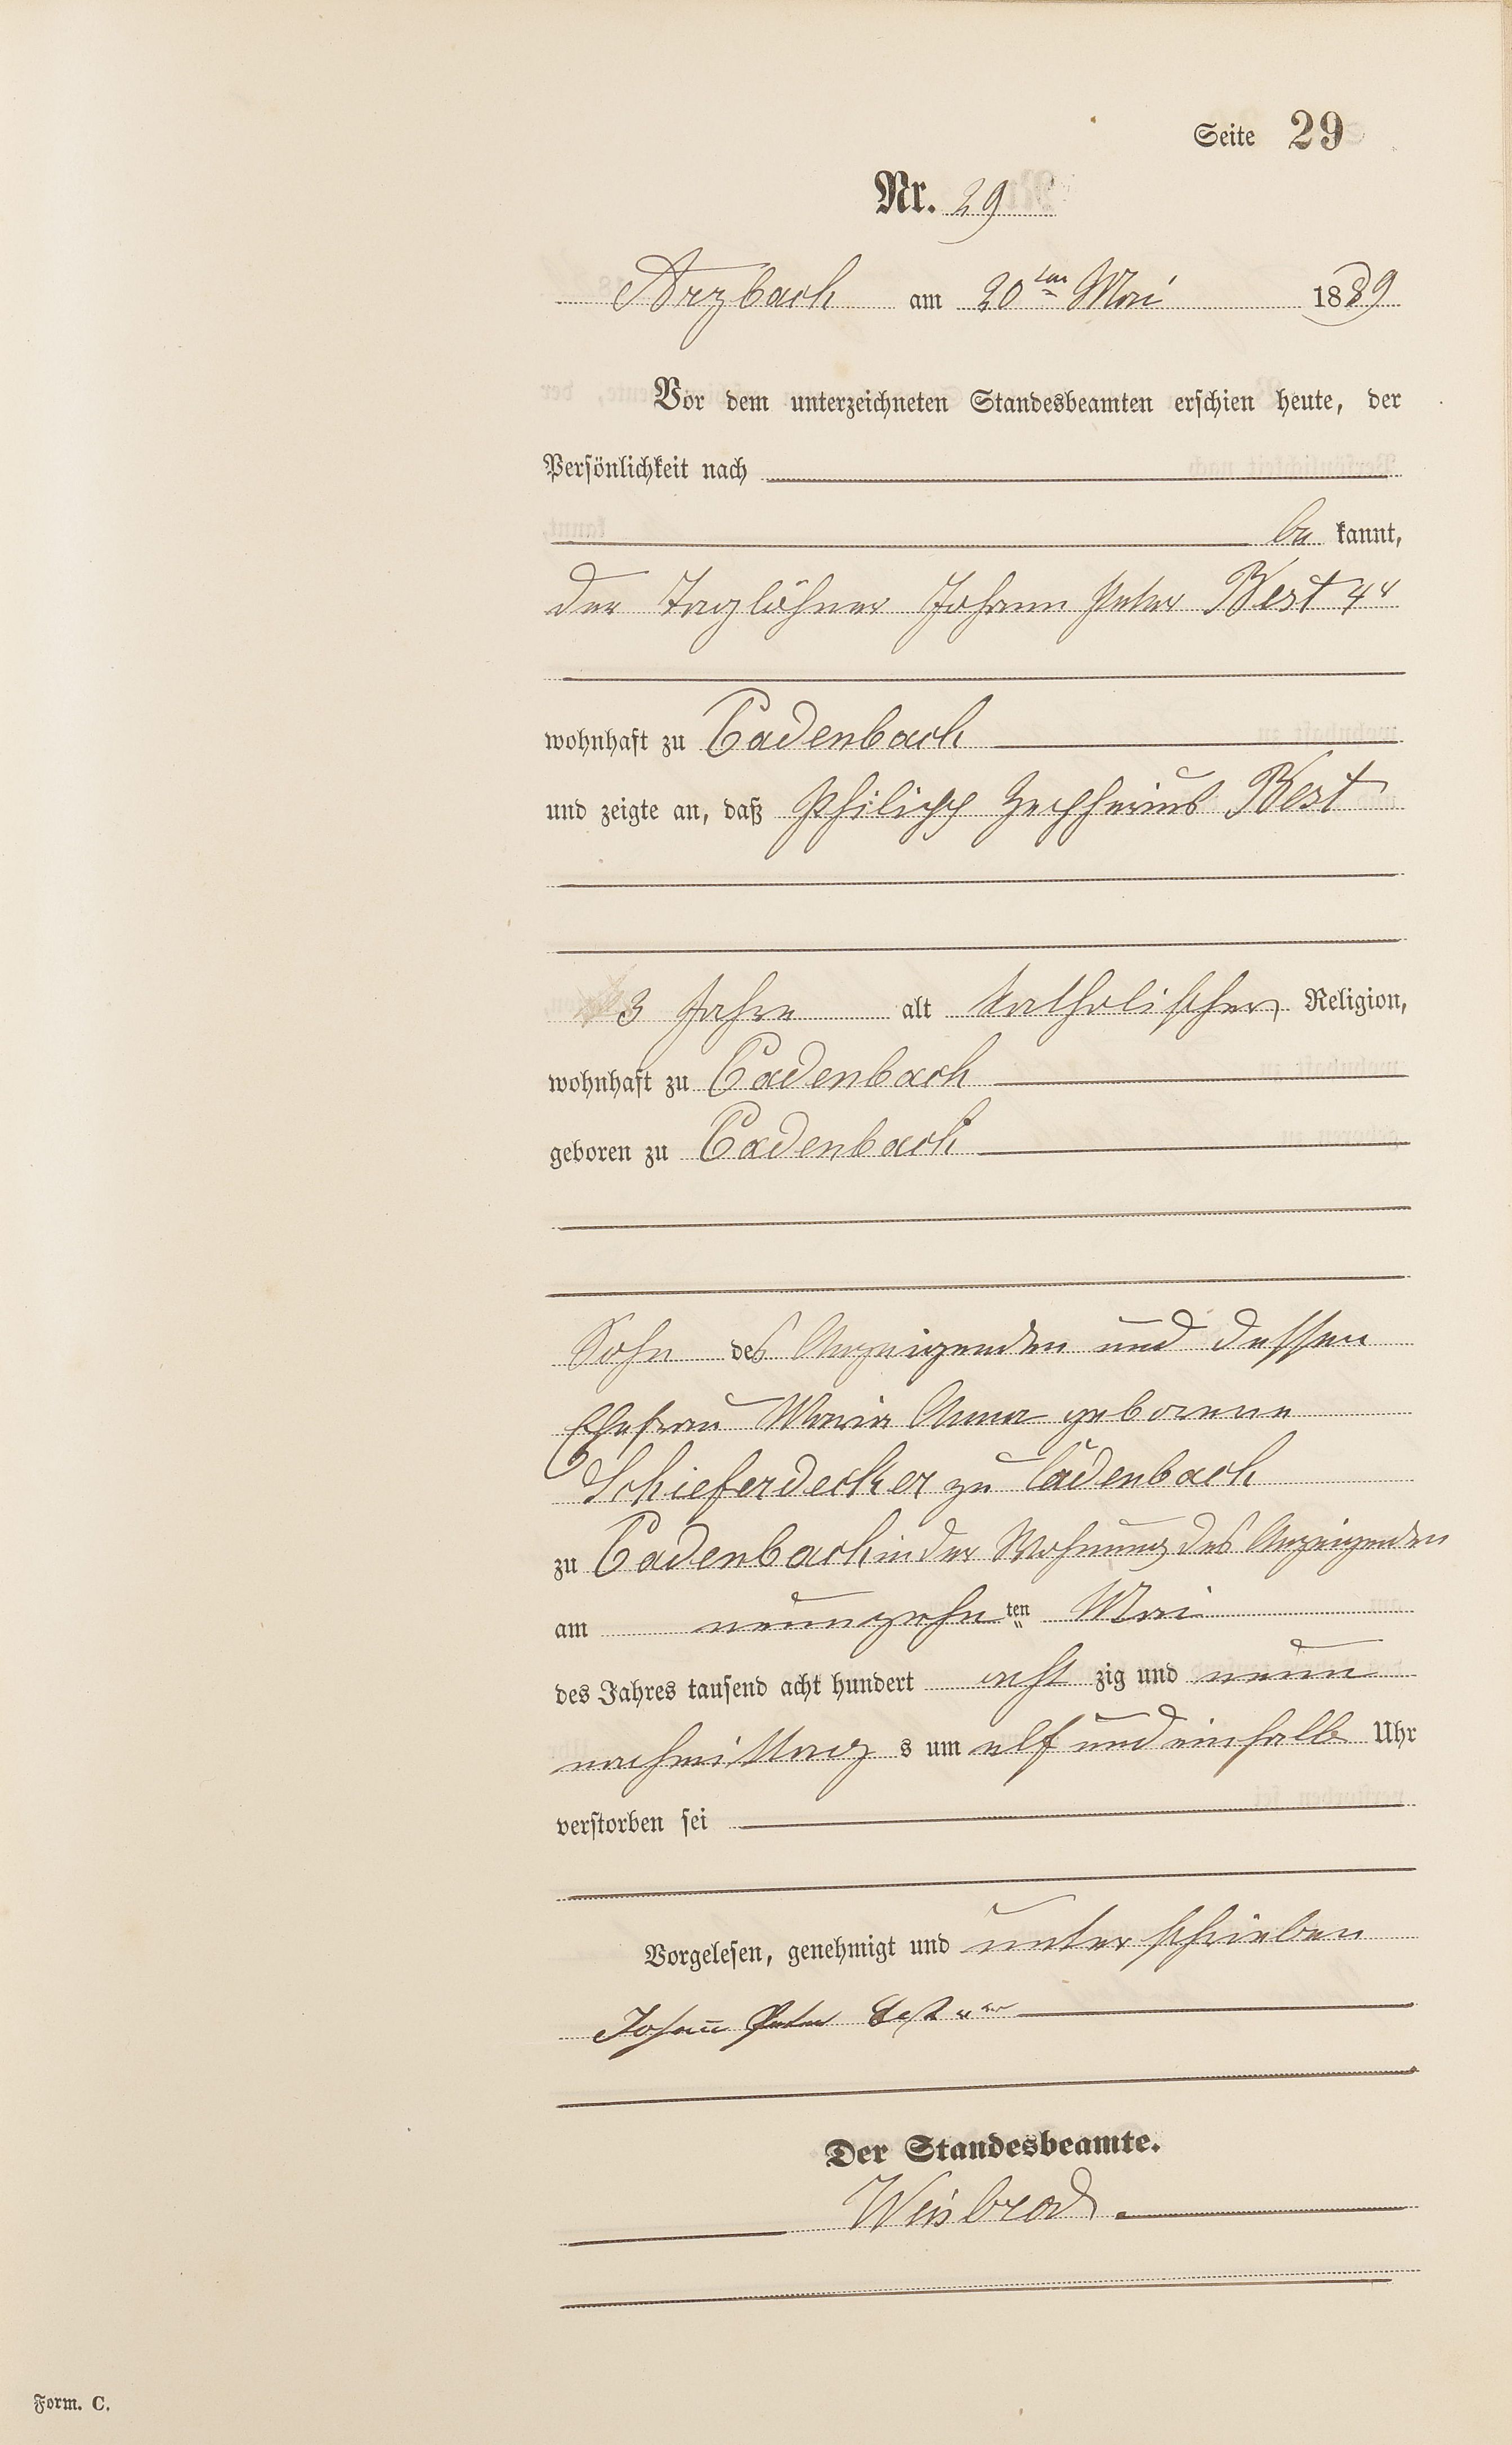 Seite 29
Nr. 29
Arzbach am 20ten Mai 1889
Vor dem unterzeichneten Standesbeamten erschien heute, der
Persönlichkeit nach
be kannt,
der Taglöhner Johann Peter Best 4r
wohnhaft zu Cadenbach
und zeigte an, daß Philipp Zephirius Best
3 Jahre alt katholischer Religion,
wohnhaft zu Cadenbach
geboren zu Cadenbach
Sohn des Anzeigenden und dessen
Ehefrau Maria Anna geborene
Schieferdecker zu Cadenbach
zu Cadenbach in der Wohnung des Anzeigenden
am neunzehn ten Mai
des Jahres tausend acht hundert acht zig und neun
nachmittag s um elf und einhalb Uhr
verstorben sei
Vorgelesen, genehmigt und unterschrieben
Johann Peter Best
Der Standesbeamte.
Weisbrod.
Form. C.